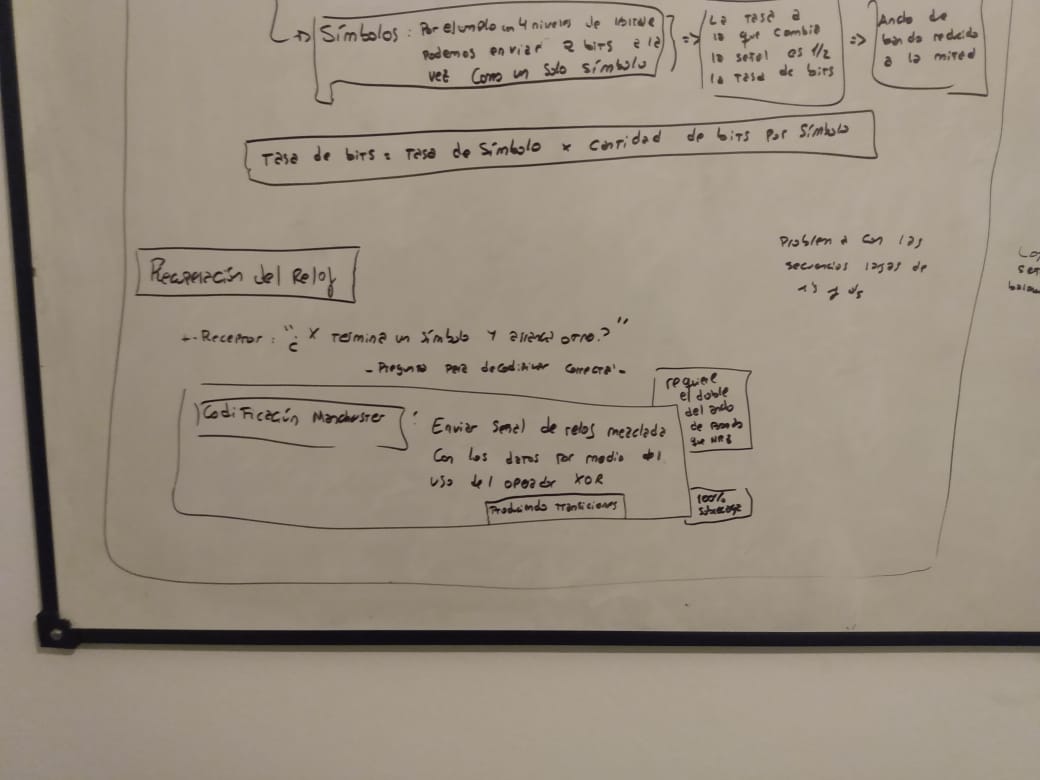 Símbolos : Por ejemplo con 4 niveles de
Podemos enviar 2 bits a la
vez como un solo símbolo
=>
La Tasa a
la que cambia
la señal es 1/2
la Tasa de bits
=>
Ancho de
banda reducido
a la mitad
Tasa de bits = Tasa de Símbolo x Cantidad de bits por Símbolo
Recuperación del Reloj
Problema con las
secuencias largas de
1's y 0's
Receptor : "¿ X Termina un símbolo y arranca otro?"
- Pregunta para decodificar correcta -
Codificación Manchester :
Enviar señal de reloj mezclada
Con los datos por medio del
uso del operador XOR
Produciendo transiciones
requiere
el doble
del ancho
de banda
que NRZ
100%